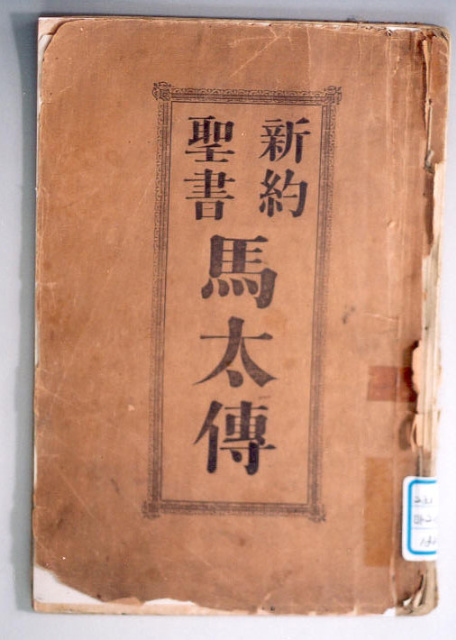 新約
聖書
馬太傳